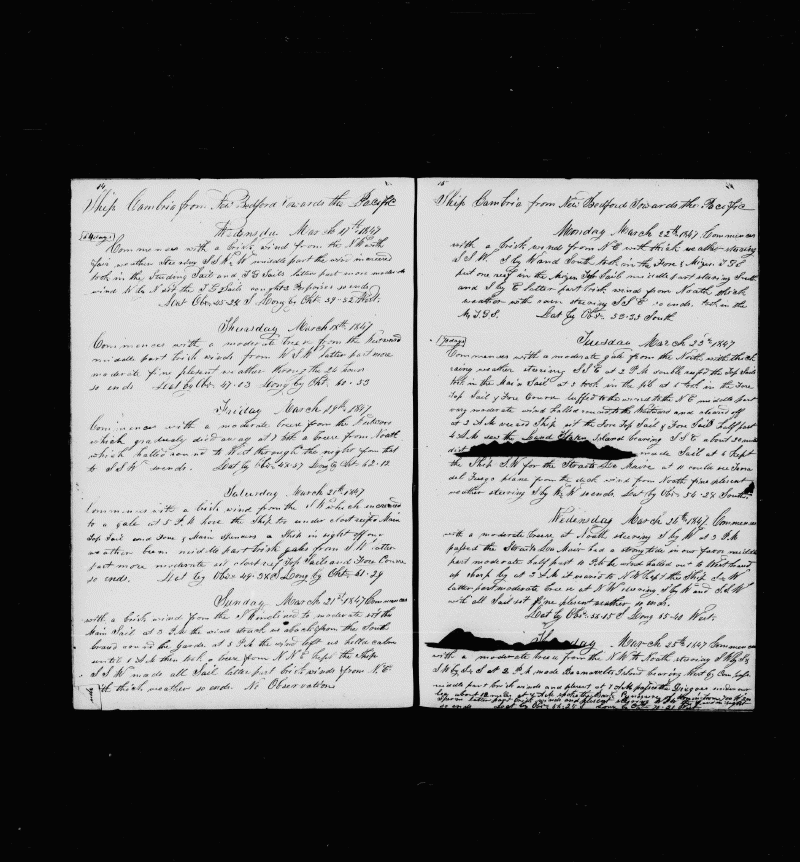 14
Ship Cambria from New Bedford towards the Pacific
Wednesday March 17th 1847
Commences with a brisk wind from the NE with
fair weather Steering SSW middle part the wind increased
took in the Studding Sail and T G Sails latter part more moderate
wind W by N set the T G Sails caught 2 Porpoises so ends
Lat Obs 45-28 S Long by Cht 59-52 West
Thursday March 18th 1847
Commences with a moderate breeze from the Westward
middle part brisk winds from WSW latter part more
moderate fine plesent weather through the 24 hours
so ends Lat by Obs 47-03 Long by Cht 60-53
Friday March 19th 1847
Commences with a moderate breeze from the Westward
which gradualy died away at 7 took a breeze from North
which halled round to West through the night from that
to SSW so ends. Lat by Obs 48-57 Long by Cht 62-12
Saturday March 20th 1847
Commences with a brisk wind from the SW which increased
to a gale at 5 P.M hove the Ship too under close reefed Main
Top Sail and Fore & Main spencers a Ship in sight off our
weather beam middle part brisk gales from SW latter
part more moderate set close reef Top Sails and Fore Course
so ends. Lat by Obs 49-38 S Long by Cht 61-29
Sunday March 21st 1847 Commences
with a brisk wind from the S inclined to moderate set the
Main Sail at 3 P.M the wind struck us aback from the South
braced round the yards at 5 P.M the wind left us in the calm
until 1 A.M then took a breeze from NNE kept the Ship
SSW made all Sail latter part brisk winds from NE
with thick weather so ends No Observations
15
Ship Cambria from New Bedford Towards the Pacific
Monday March 22nd 1847 Commences
with a brisk wind from NE with thick weather steering
SSW S by W and South took in the Fore & Mizen T G S
put one reef in the Mizen Top Sail middle part steering South
and S by E latter part brisk wind from North thick
weather with rain steering SSE so ends. took in the
M T G S. Lat by Obs 53-33 South
Tuesday March 23rd 1847
Commences with a moderate gale from the North with thick
rainy weather steering SSE at 2 P.M double reefd the Top Sails
took in the Main Sail at 3 took in the jib at 4 took in the Fore
Top Sail & Fore Course luffed to the wind to the NE middle part
very moderate wind halled round to the Westward and cleared off
at 2 A.M weared Ship set the Fore Top Sail & Fore Sail half past
4 A.M saw the Island bearing SSE about 20 miles
dist made Sail at 6 kept
the Ship SW for the Straits Le Maire at 11 could see Terra
del Fuego plane from the deck wind from North fine plesent
weather steering S by W so ends. Lat by Obs 54-28 South
Wednesday March 24th 1847 Commences
with a moderate breeze at North steering S by W at 3 P.M
passed the Straits Le Mair had a strong tide in our favor middle
part moderate half past 11 P.M the wind halled out to West braced
up sharp by at 2 A.M it veared to NW kept the Ship SSW
latter part moderate breeze at NW steering S by W and SSW
with all Sail set fine plesent weather so ends.
Lat by Obs 56-15 S Long 65-40 West
Thursday March 25th 1847 Commences
with a moderate breeze from the NW to North steering
at 2 P.M made Barnevelts Island bearing West by Compass
middle part brisk winds and plesent at